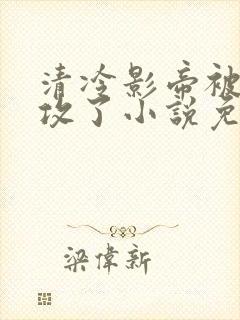 清冷影帝被
攻了小說免
梁偉新